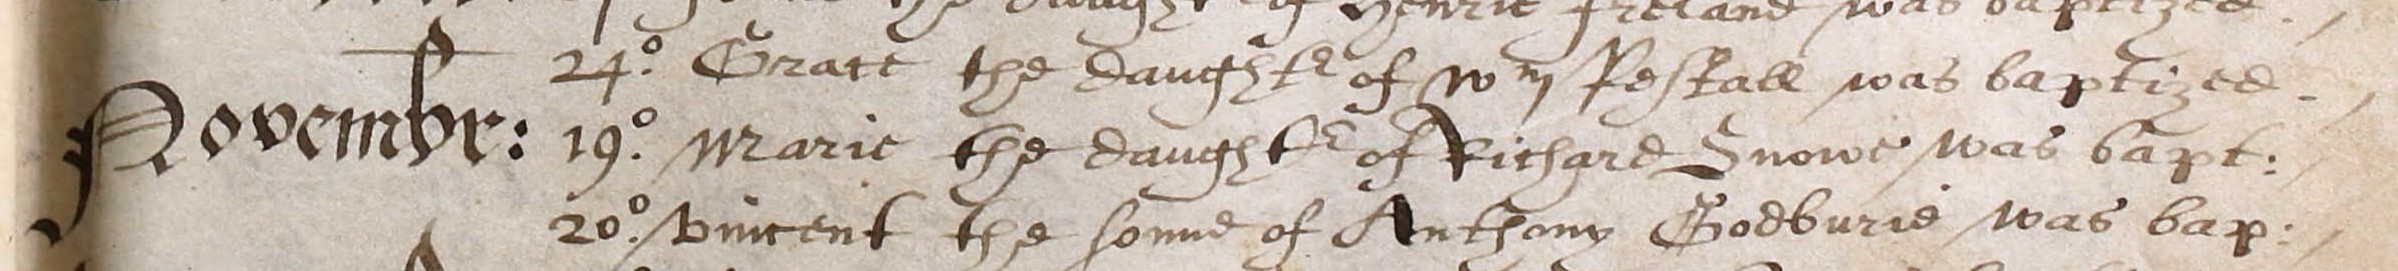 the daught of Henrie Ireland was baptized.
24o. Grace the daughtr of Wm Pestall was baptized.
Novembr: 19o. Marie the daughtr of Richard Snowe was bapt:
20o. Vincent the sonne of Anthony Godburie was bap: